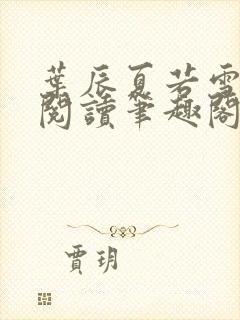 葉辰夏若雪
閱讀筆趣閣
賈玥